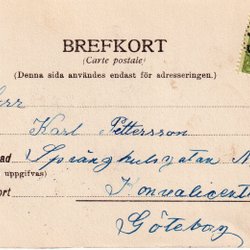 BREFKORT
(Carte postale)
(Denna sida användes endast för adresseringen.)
Karl Pettersson
ad Sprängkulsgatan N
uppgifvas)
ort Konvalicent
Göteborg